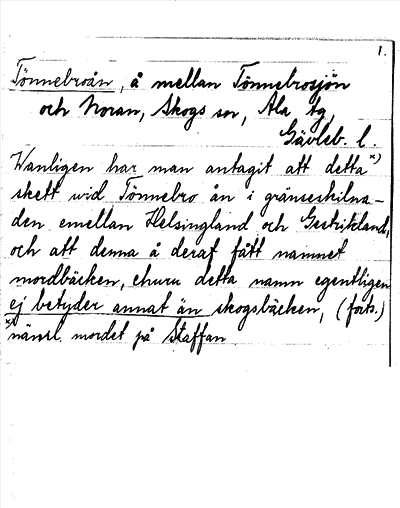 1.
Tönnebroån, å mellan Tönnebrosjön
och Noran, Skogs sn, Ala tg,
Gävleb. l.
Wanligen har man antagit att detta x)
skett wid Tönnebro ån i gränseskilna-
den emellan Helsingland och Gestrikland,
och att denna å deraf fått namnet
mordbäcken, churu detta namn egentligen
ej betyder annat än skogsbäcken, (forts.)
x) näml. mordet på Staffan